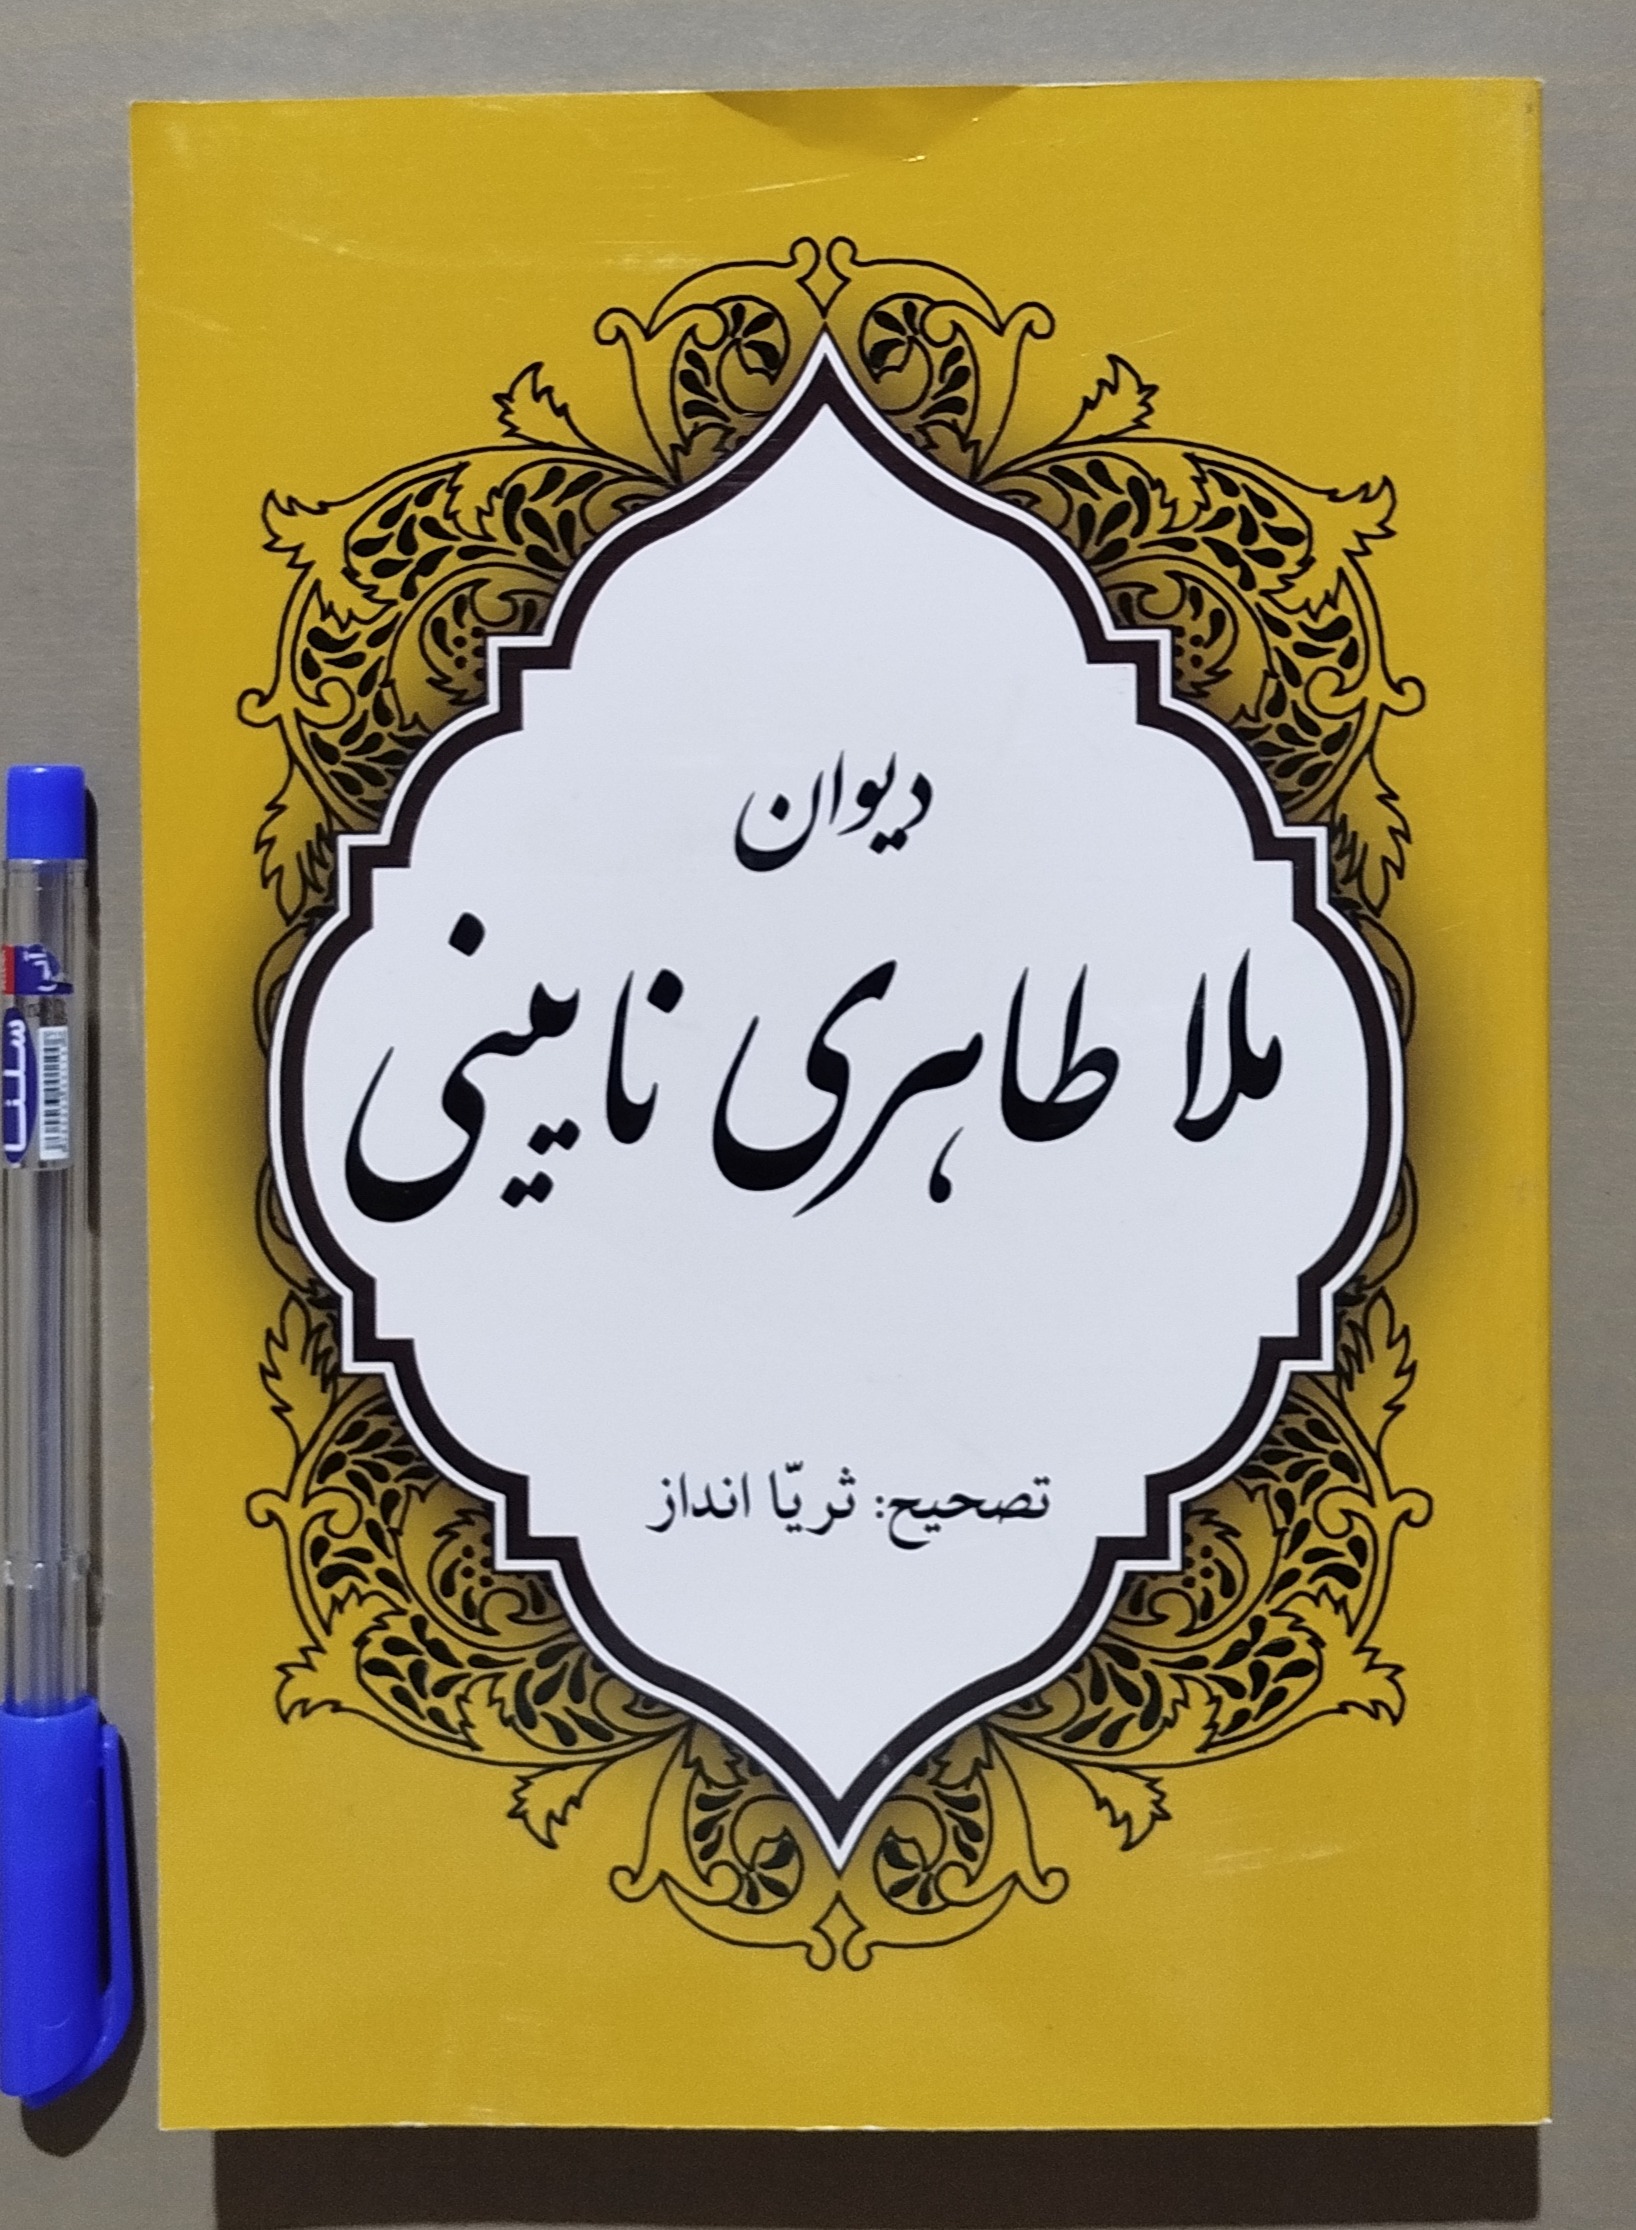 دیوان
ملا طاهری نایینی
تصحیح: ثریّا انداز
سلنا